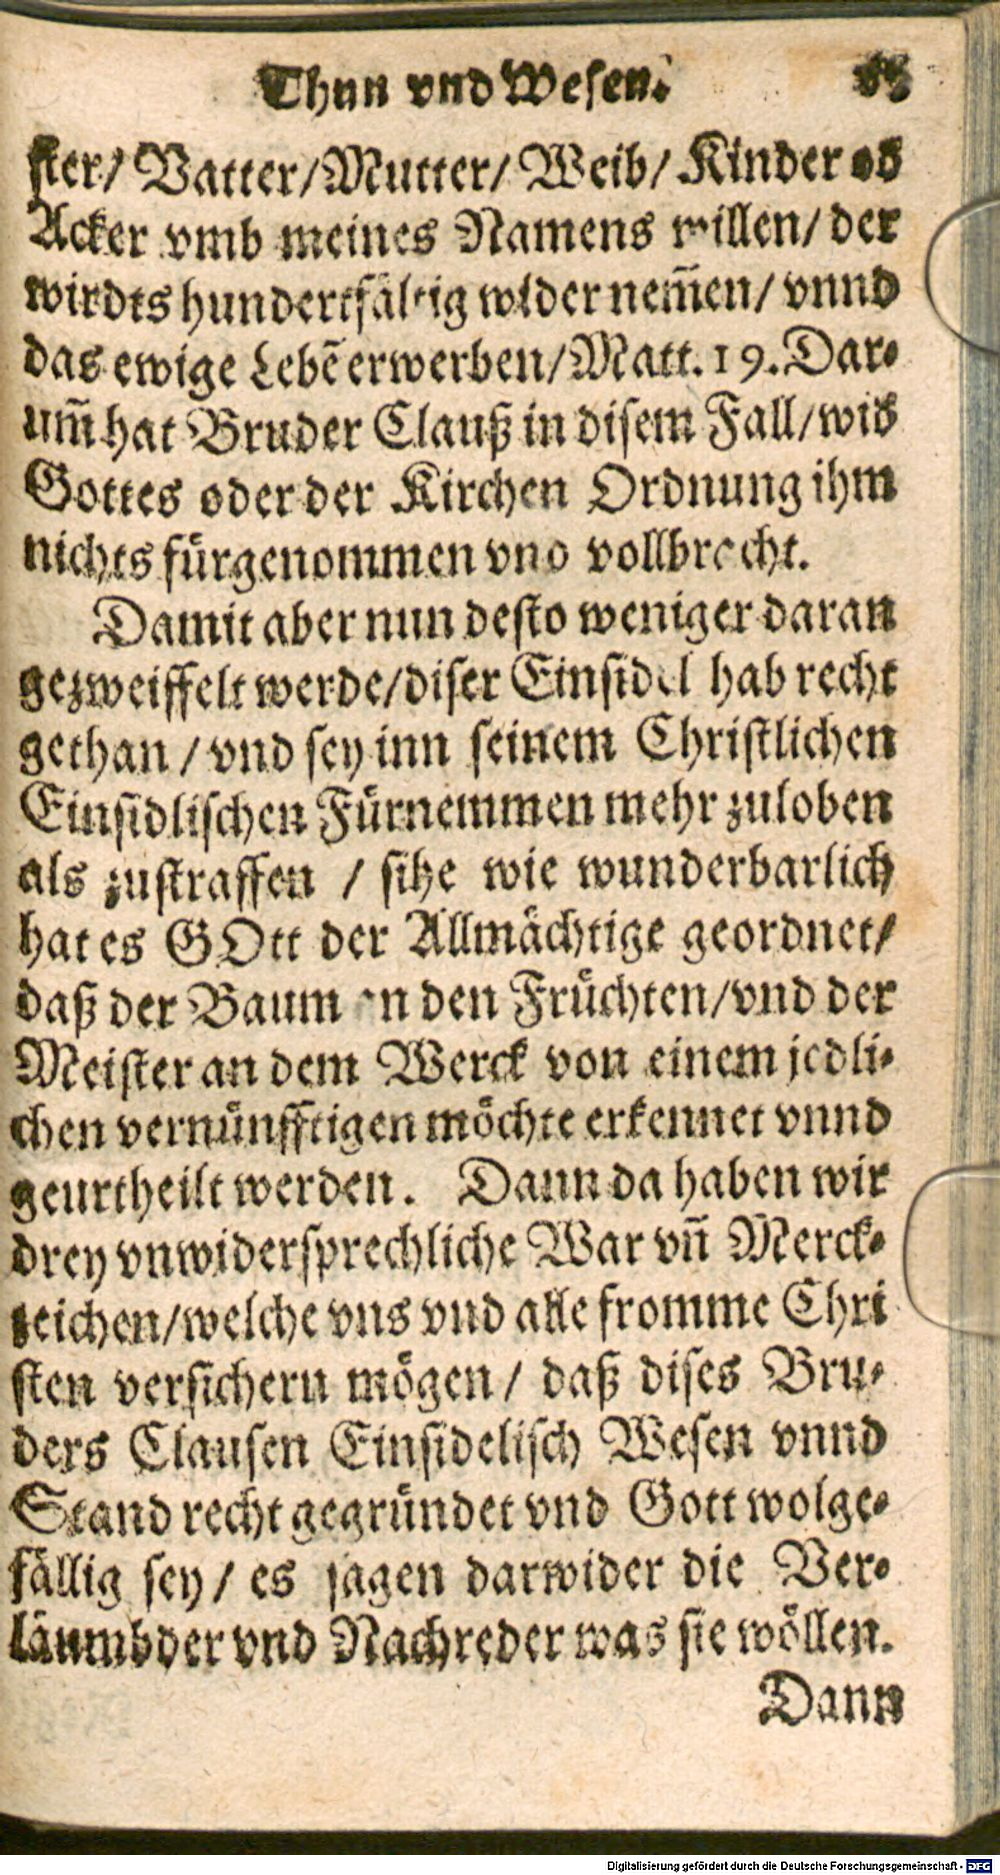 Thun vnd Wesen.
ster/ Vatter/Mutter/ Weib/ Kinder
Acker vmb meines Namens willen/ der
wirdts hundertfältig wider nem̄en/ vnnd
das ewige Lebē erwerben/Matt. 19. Dar-
um̄ hat Bruder Clauß in disem Fall/wid
Gottes oder der Kirchen Ordnung ihm
nichts fürgenommen vnd vollbracht.
Damit aber nun desto weniger daran
gezweiffelt werde/diser Einsidel hab recht
gethan / vnd sey inn seinem Christlichen
Einsidlischen Fürnemmen mehr zuloben
als zustraffen / sihe wie wunderbarlich
hat es GOtt der Allmächtige geordnet/
daß der Baum an den Früchten/vnd der
Meister an dem Werck von einem jedli-
chen vernünfftigen möchte erkennet vnnd
geurtheilt werden. Dann da haben wir
drey vnwidersprechliche War vn̄ Merck-
zeichen/welche vns vnd alle fromme Chri
sten versichern mögen / daß dises Bru-
ders Clausen Einsidelisch Wesen vnnd
Stand recht gegründet vnd Gott wolge-
fällig sey / es sagen darwider die Ver-
läumbder vnd Nachreder was sie wöllen.
Dann
Digitalisierung gefördert durch die Deutsche Forschungsgemeinschaft - DFG